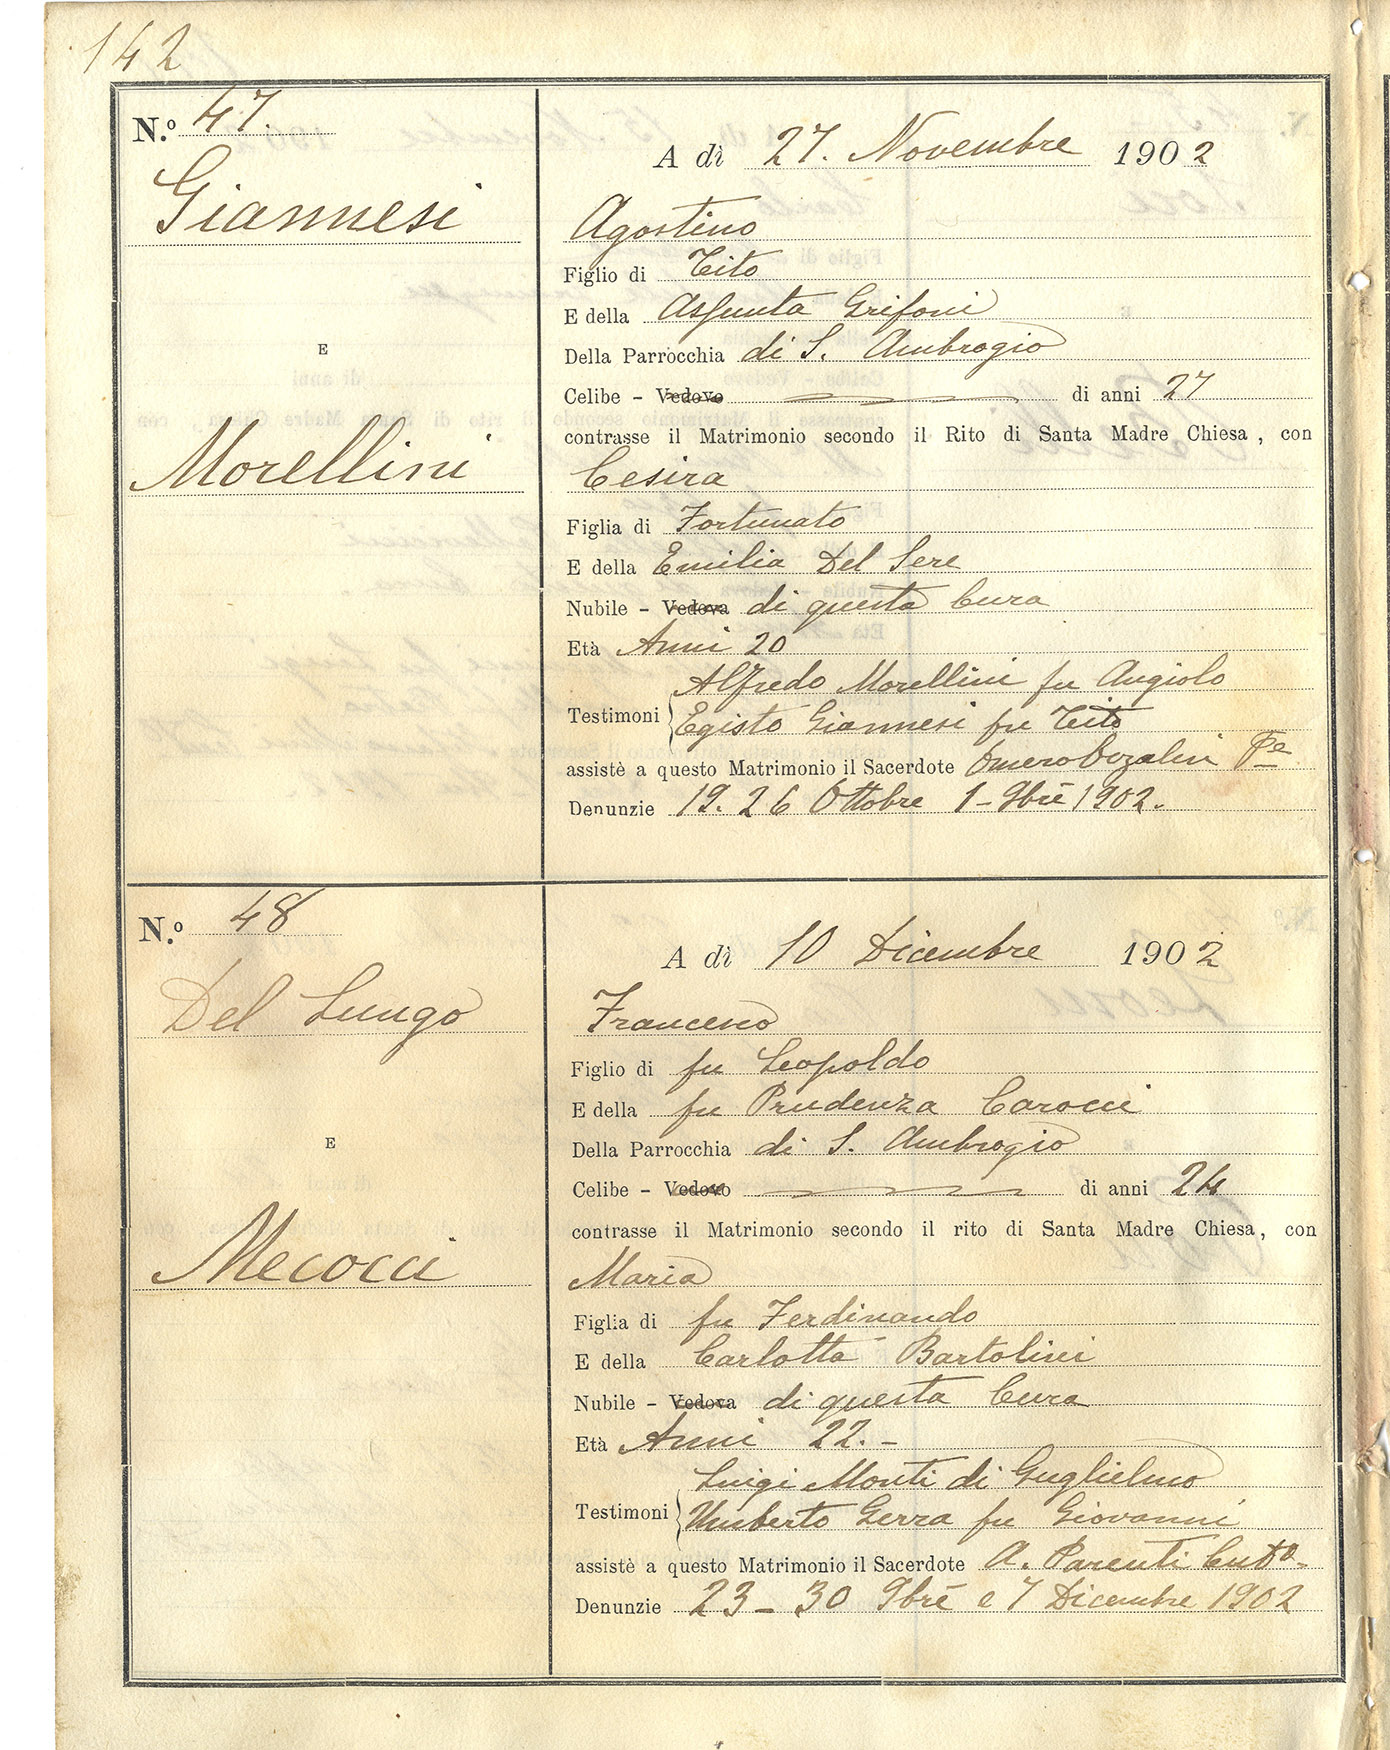 142
N.º 47.
Giannesi
E
Morellini
A dì 27. Novembre 1902
Agostino
Figlio di Tito
E della Assunta Grifoni
Della Parrocchia di S. Ambrogio
Celibe - Vedovo di anni 27
contrasse il Matrimonio secondo il Rito di Santa Madre Chiesa, con
Cesira
Figlia di Fortunato
E della Emilia Del Sere
Nubile - Vedova di questa Cura
Età Anni 20
Alfredo Morellini fu Angiolo
Testimoni Egisto Giannesi fu Tito
assistè a questo Matrimonio il Sacerdote
Denunzie 19. 26 Ottobre 1 - 9bre 1902.
N.º 48
Del Lungo
E
Mecocci
A dì 10 Dicembre 1902
Francesco
Figlio di fu Leopoldo
E della fu Prudenza Carocci
Della Parrocchia di S. Ambrogio
Celibe - Vedovo di anni 24
contrasse il Matrimonio secondo il rito di Santa Madre Chiesa, con
Maria
Figlia di fu Ferdinando
E della Carlotta Bartolini
Nubile - Vedova di questa Cura
Età Anni 22. -
Luigi Monti di Guglielmo
Testimoni Umberto Serra fu Giovanni
assistè a questo Matrimonio il Sacerdote A. Parenti
Denunzie 23 - 30 9bre e 7 Dicembre 1902